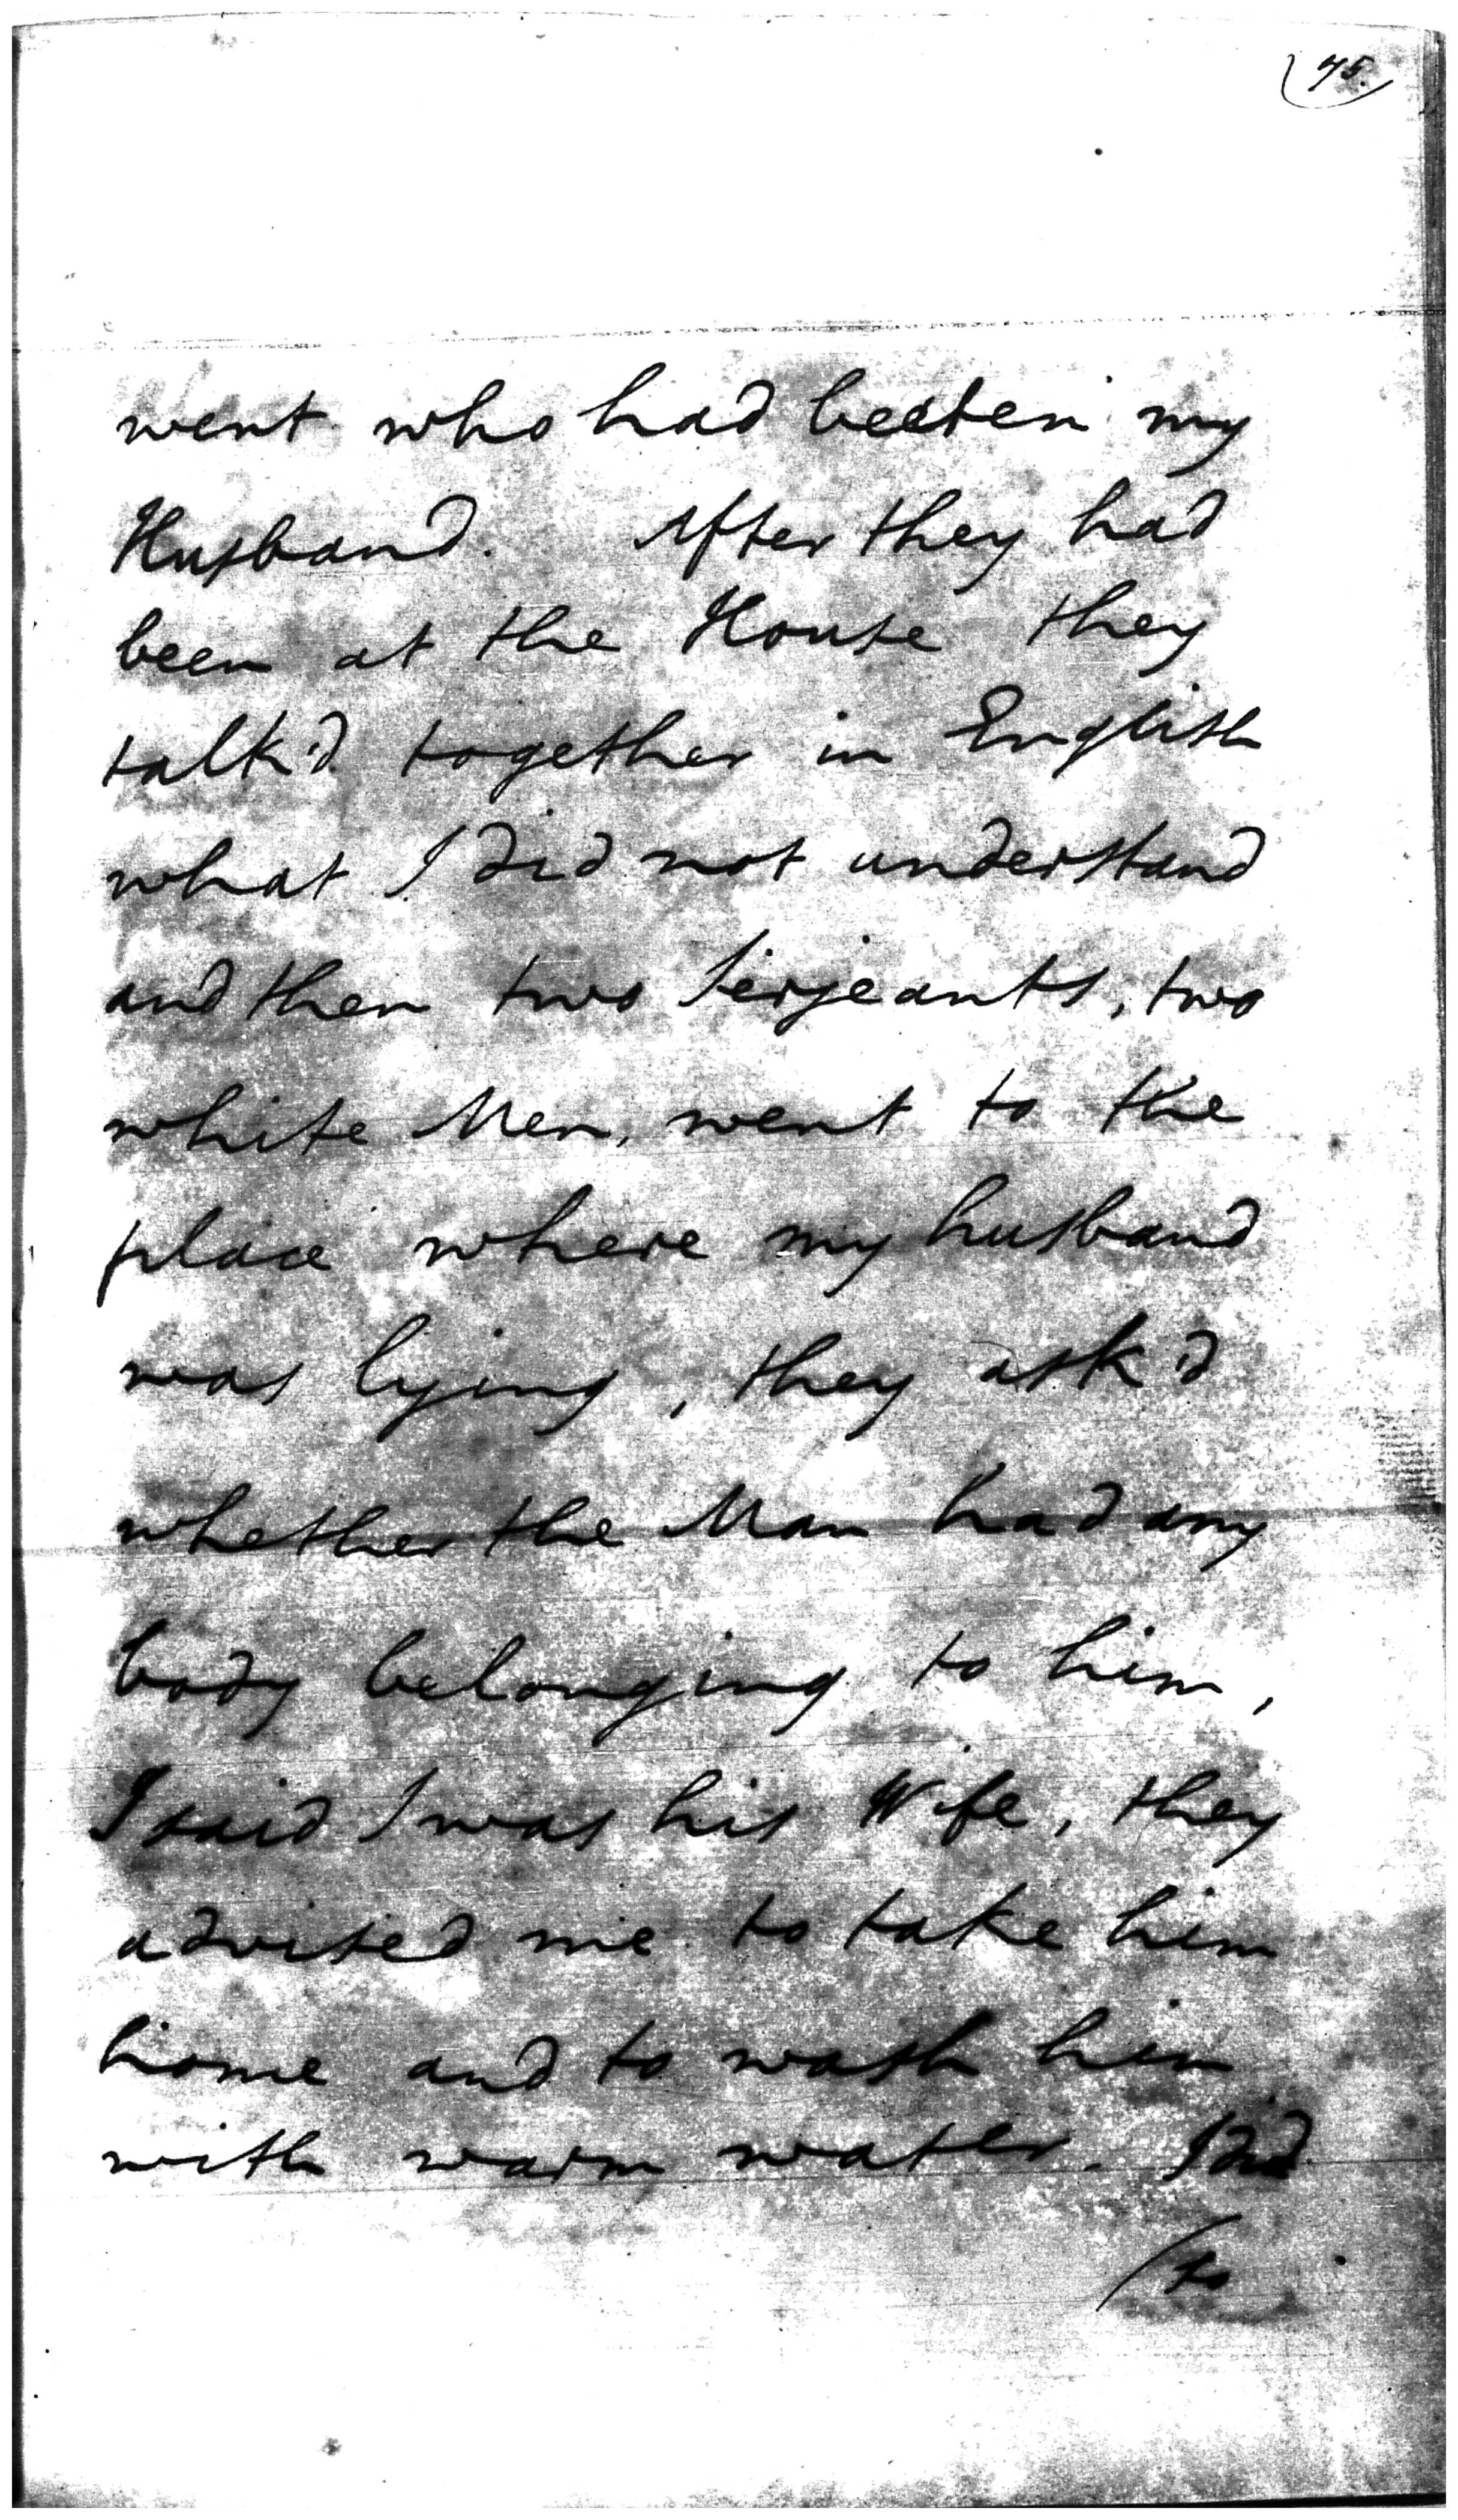 75.
went who had beeten my
Husband. After they had
been at the House they
talk'd together in English
what I did not understand
and then two Serjeants, two
white Men, went to the
place where my husband
was lying, they ask'd
whether the Man had any
body belonging to him,
I said I was his Wife, they
advised me to take him
home and to wash him
with warm water. I did
(to